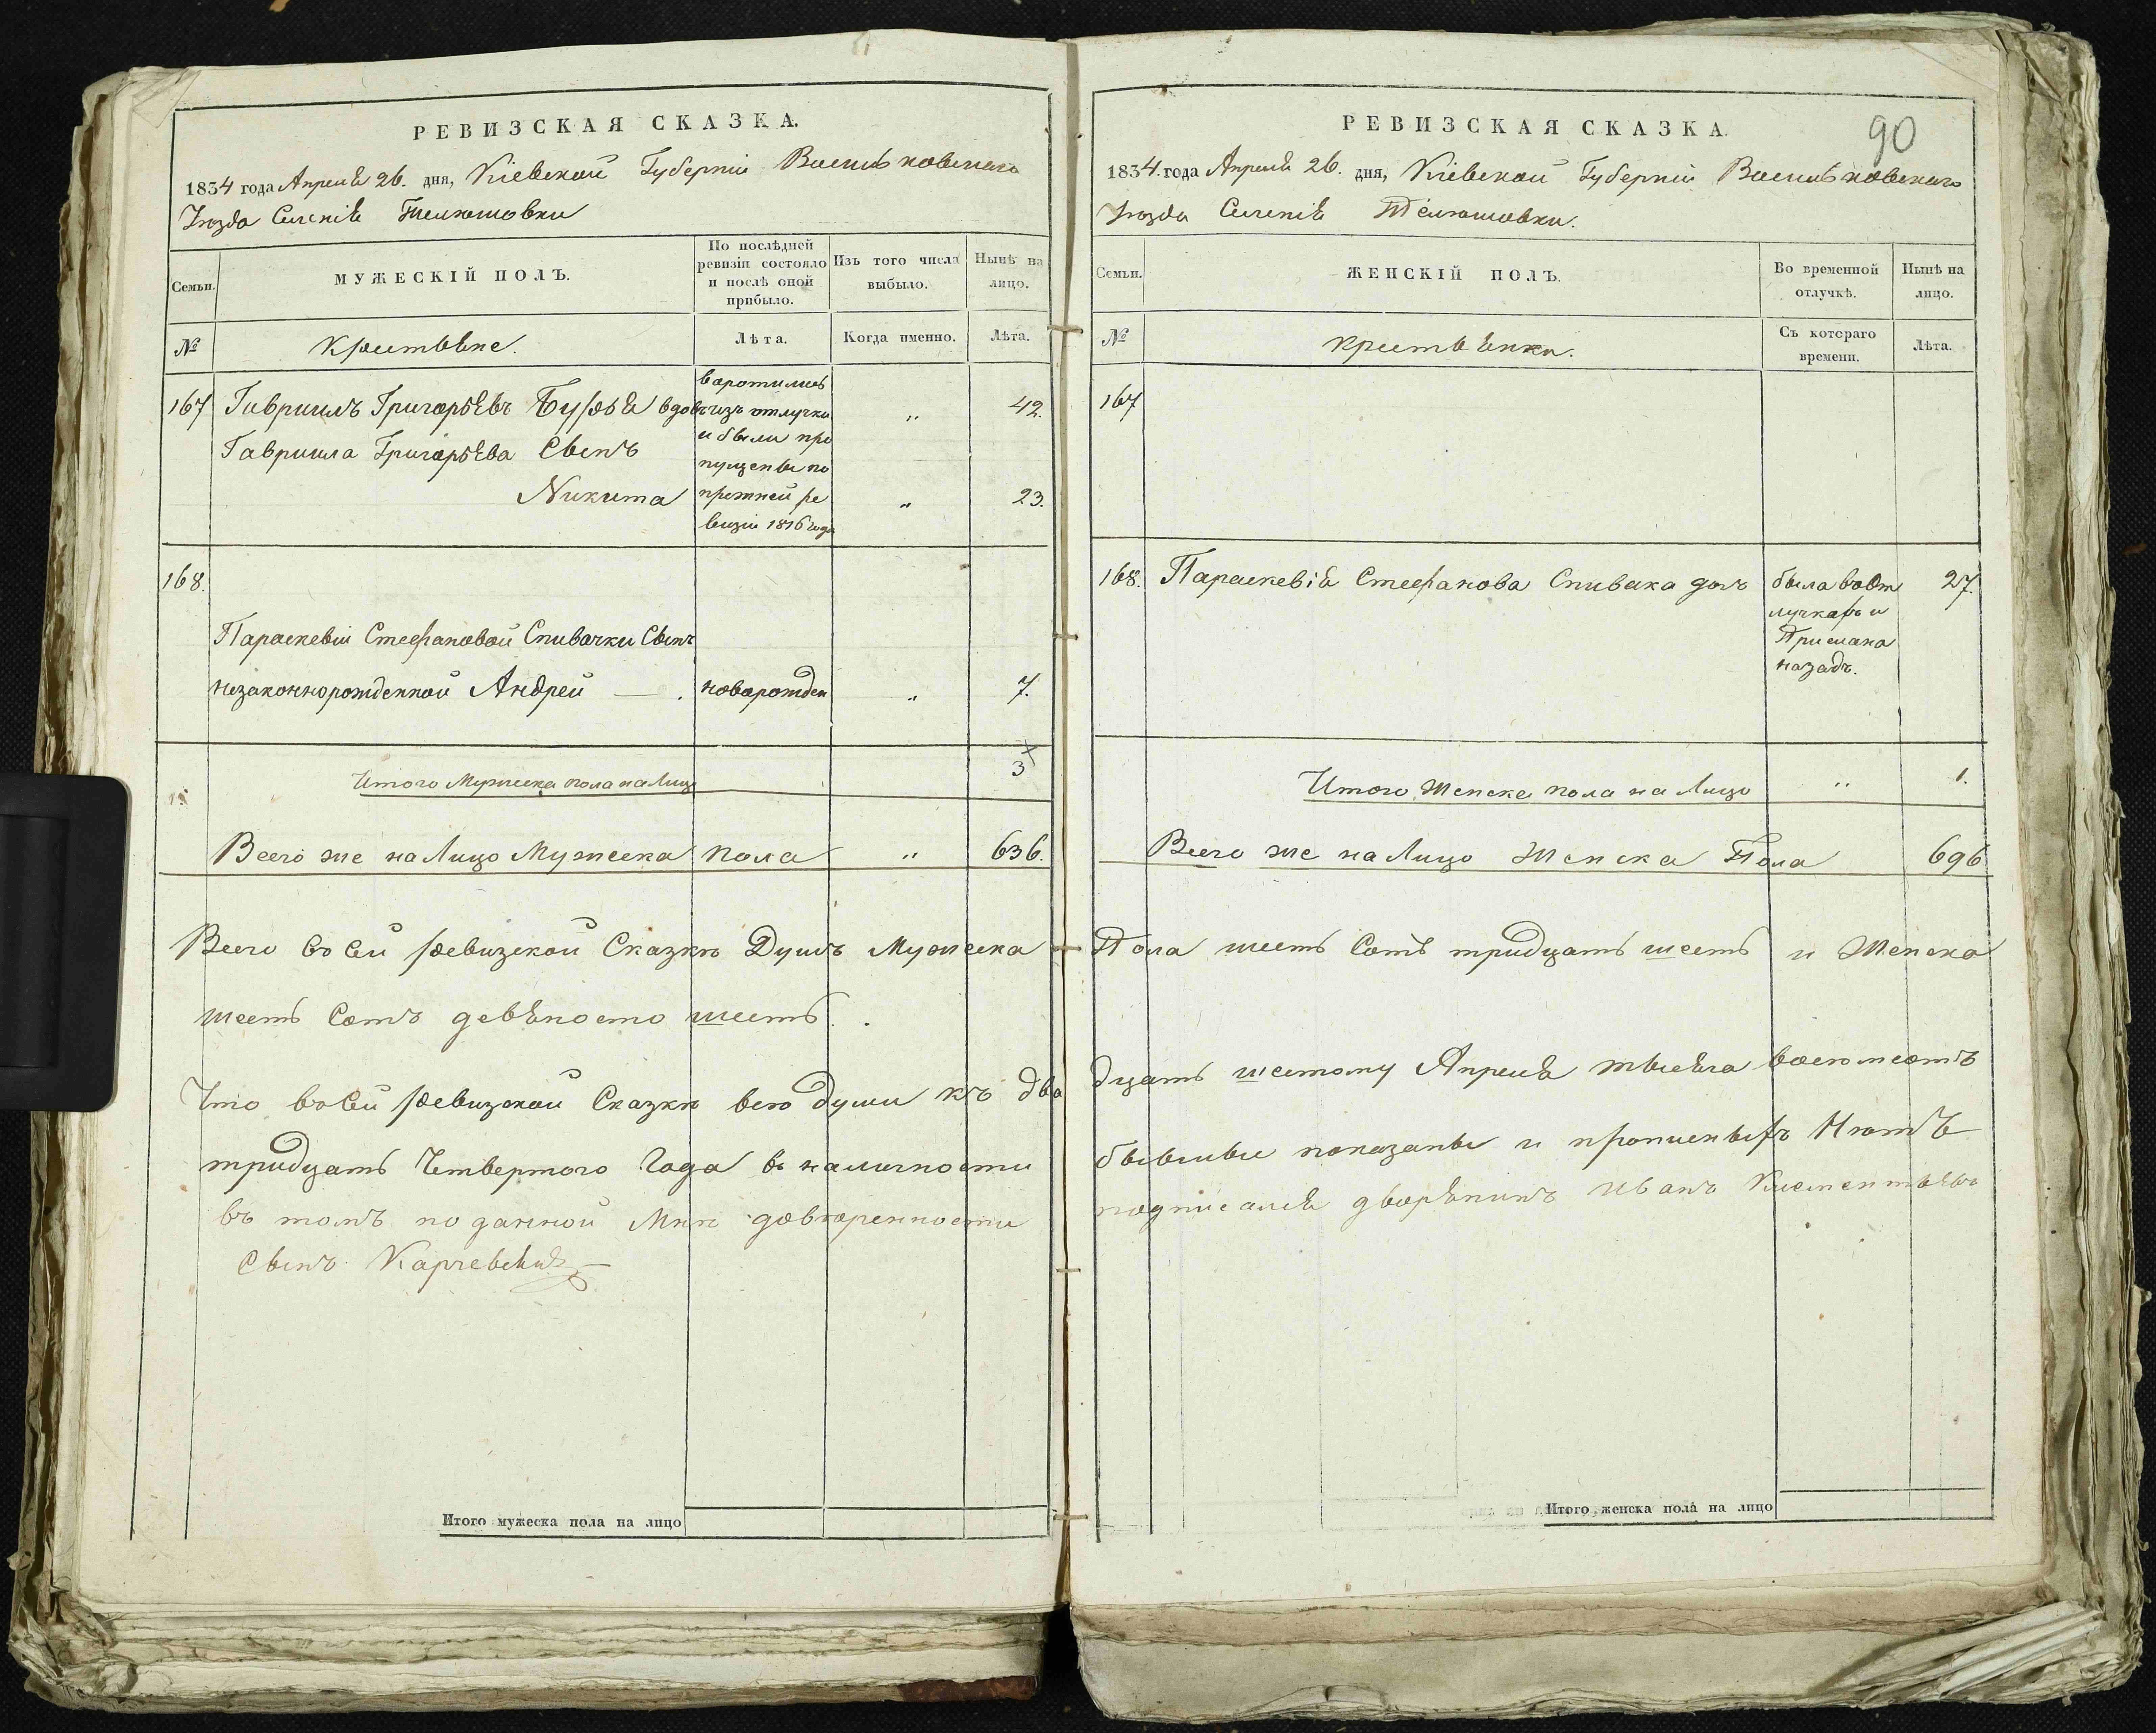 РЕВИЗСКАЯ СКАЗКА.
1834 года Апреля 26. дня, Кіевской Губерніи Васильковскаго
Уезда Селенія Телешовки
Семьи.
МУЖЕСКІЙ ПОЛЪ.
По послѣдней
ревизіи состояло
и послѣ оной
прибыло.
Изъ того числа
выбыло.
Нынѣ на
лицо.
№
Крестьяне.
Лѣта.
Когда именно.
Лѣта.
167 Гавриилъ Григорьевъ вдовъ 42.
Гавриила Григорьева Сынъ
Никита 23.
воротились
изъ отлучки
и были про
пущены по
прежней ре
визіи 1816 года
168.
Параскевіи Стефановой Спивачки Сынъ
незаконнорожденной Андрей — . новорожден „ 7.
Итого Мужеска пола на Лицо 3
Всего же на Лицо Мужеска пола „ 636.
Всего во сей ревизской Сказкѣ Душъ Мужеска
шесть Сотъ девяносто шесть.
Что во сей ревизской Сказкѣ всю души къ два
тридцать Четвертого Года въ наличности
въ томъ по данной Мнѣ доверенности
Сынъ Карчевскій
Итого мужеска пола на лицо
РЕВИЗСКАЯ СКАЗКА.
90
1834. года Апреля 26. дня, Кіевской Губерніи Васильковскаго
Уезда Селенія Телешовки.
Семьи.
ЖЕНСКІЙ ПОЛЪ.
Во временной
отлучкѣ.
Нынѣ на
лицо.
№
Крестьянки.
Съ котораго
времени.
Лѣта.
167
168. Параскевія Стефанова Спивака дочь 27.
была во от
лучкахъ и
Прислана
назадъ.
Итого Женска пола на Лицо „ 1.
Всего же на Лицо Женска Пола 696
Пола шесть Сотъ тридцать шесть и Женска
дцать шестому Апреля тысяча восемсотъ
бывшие показаны и прописныхъ Нетъ
подписался дворянинъ Иванъ Клементьевъ
Итого женска пола на лицо